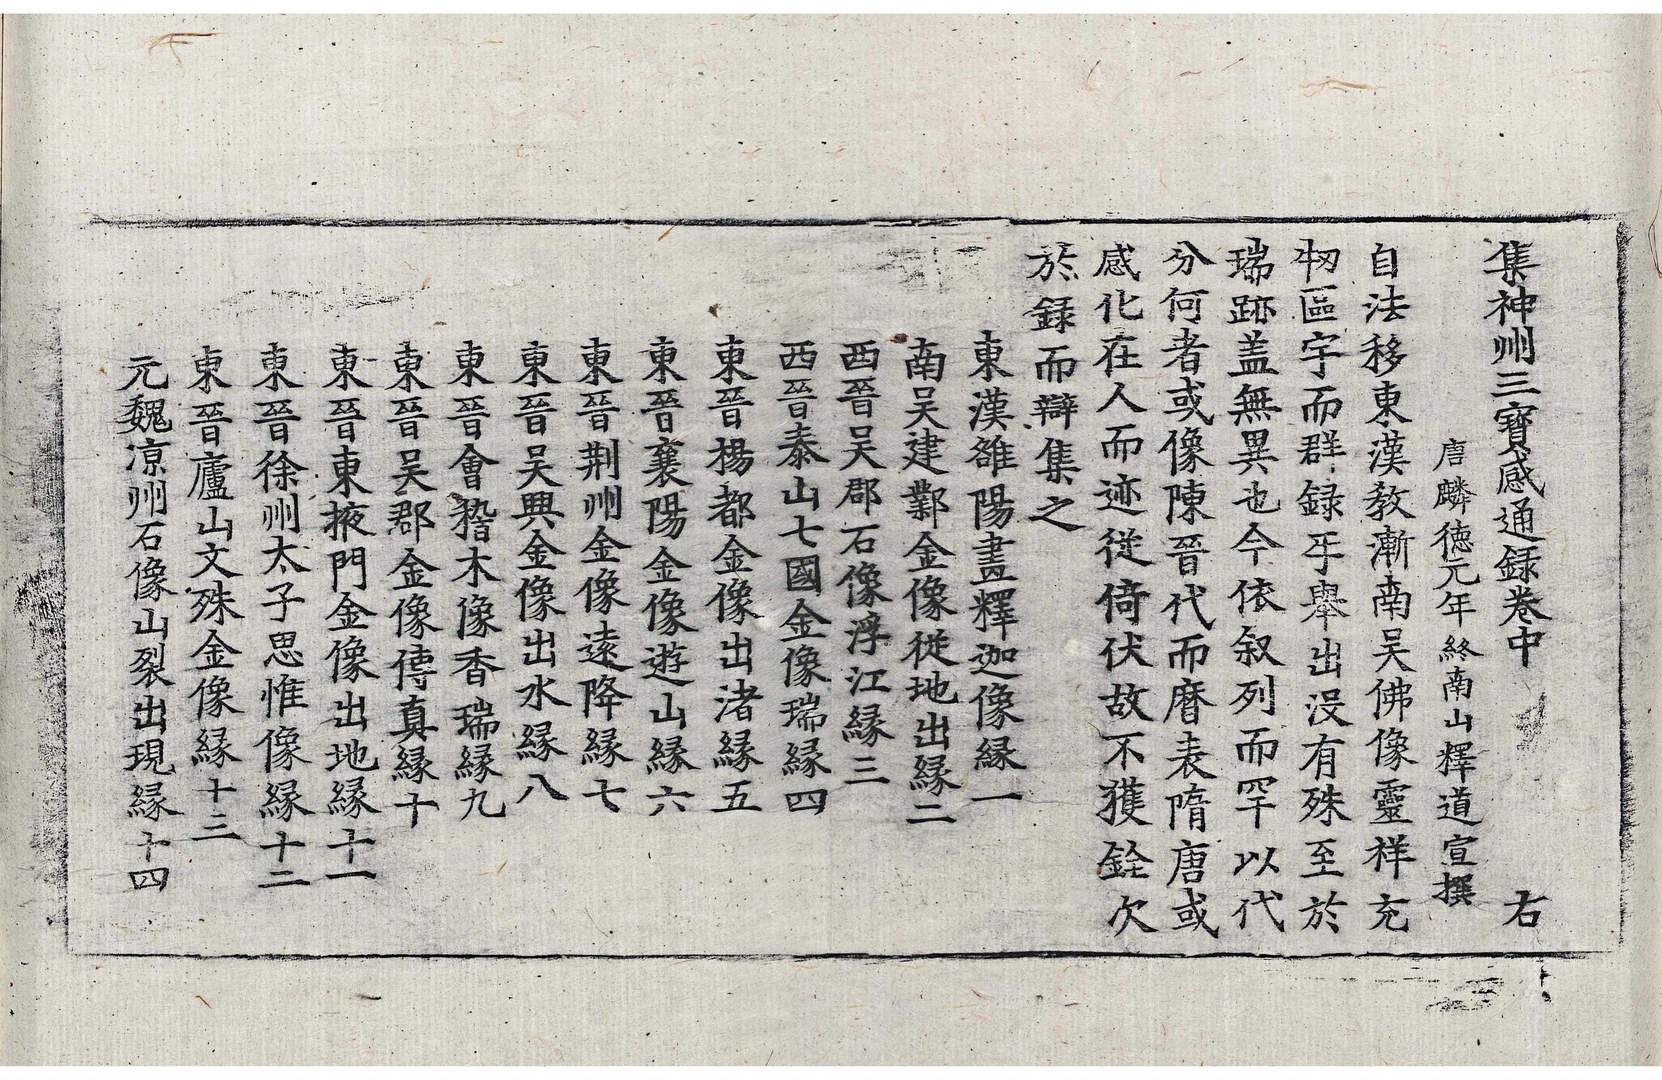 集神州三寶感通録卷中 右
唐麟徳元年終南山釋道宣撰
自法移東漢教漸南吴佛像靈祥充
牣區宇而群録互舉出没有殊至於
瑞跡盖無異也今依叙列而罕以代
分何者或像陳晉代而曆表隋唐或
感化在人而迹從倚伏故不獲銓次
於録而辯集之
東漢雒陽畫釋迦像縁一
南吴建鄴金像從地出縁二
西晉吴郡石像浮江縁三
西晉泰山七國金像瑞縁四
東晉楊都金像出渚縁五
東晉襄陽金像遊山縁六
東晉荆州金像遠降縁七
東晉吴興金像出水縁八
東晉會稽木像香瑞縁九
東晉吴郡金像傳真縁十
東晉東掖門金像出地縁十一
東晉徐州太子思惟像縁十二
東晉廬山文殊金像縁十三
元魏凉州石像山裂出現縁十四